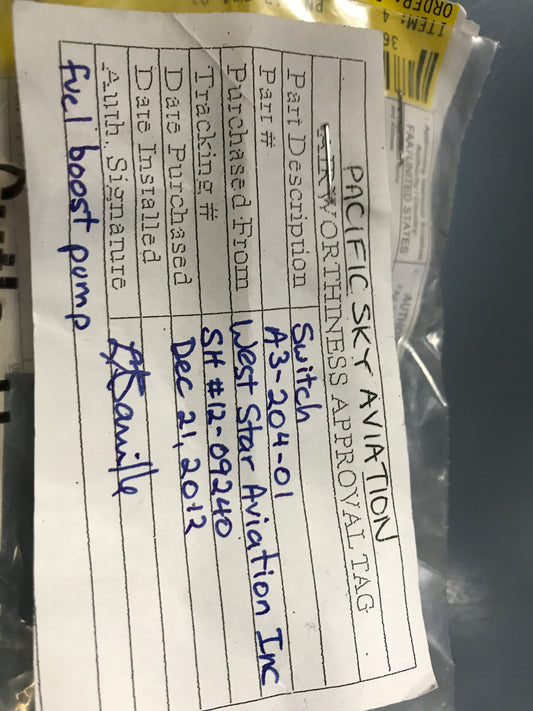 PACIFIC SKY AVIATION
AIRWORTHINESS APPROVAL TAG
Part Description Switch
Part # A3-204-01
Purchased From West Star Aviation Inc
Tracking # SH #12-09240
Date Purchased Dec 21, 2012
Date Installed
Auth. Signature
fuel boost pump
ITEM: 4
ORDER:
36
FAA/UNITED STATES